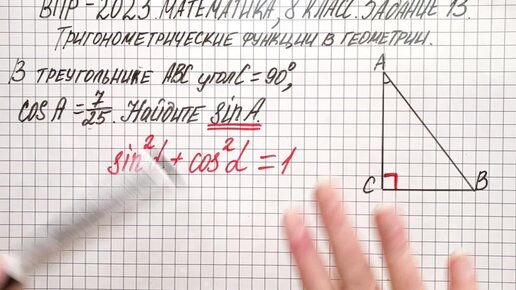 ВПР - 2023. МАТЕМАТИКА, 8 КЛАСС. ЗАДАНИЕ 13.
ТРИГОНОМЕТРИЧЕСКИЕ ФУНКЦИИ В ГЕОМЕТРИИ.
В ТРЕУГОЛЬНИКЕ ABC УГОЛ C = 90°,
cos A = 7/25. НАЙДИТЕ sin A.
sin²α + cos²α = 1
A
C
B